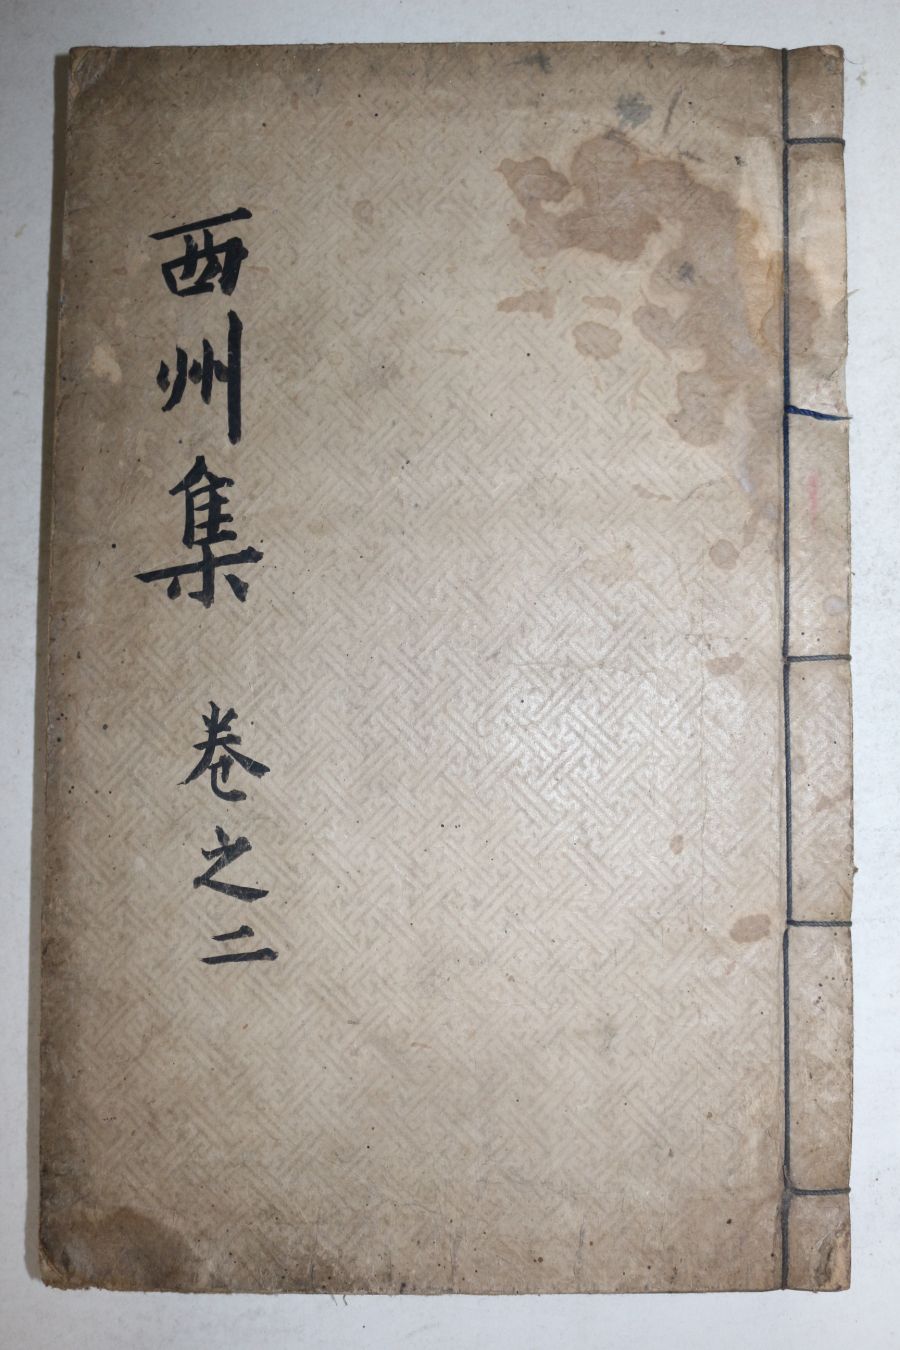 西州集 卷之二